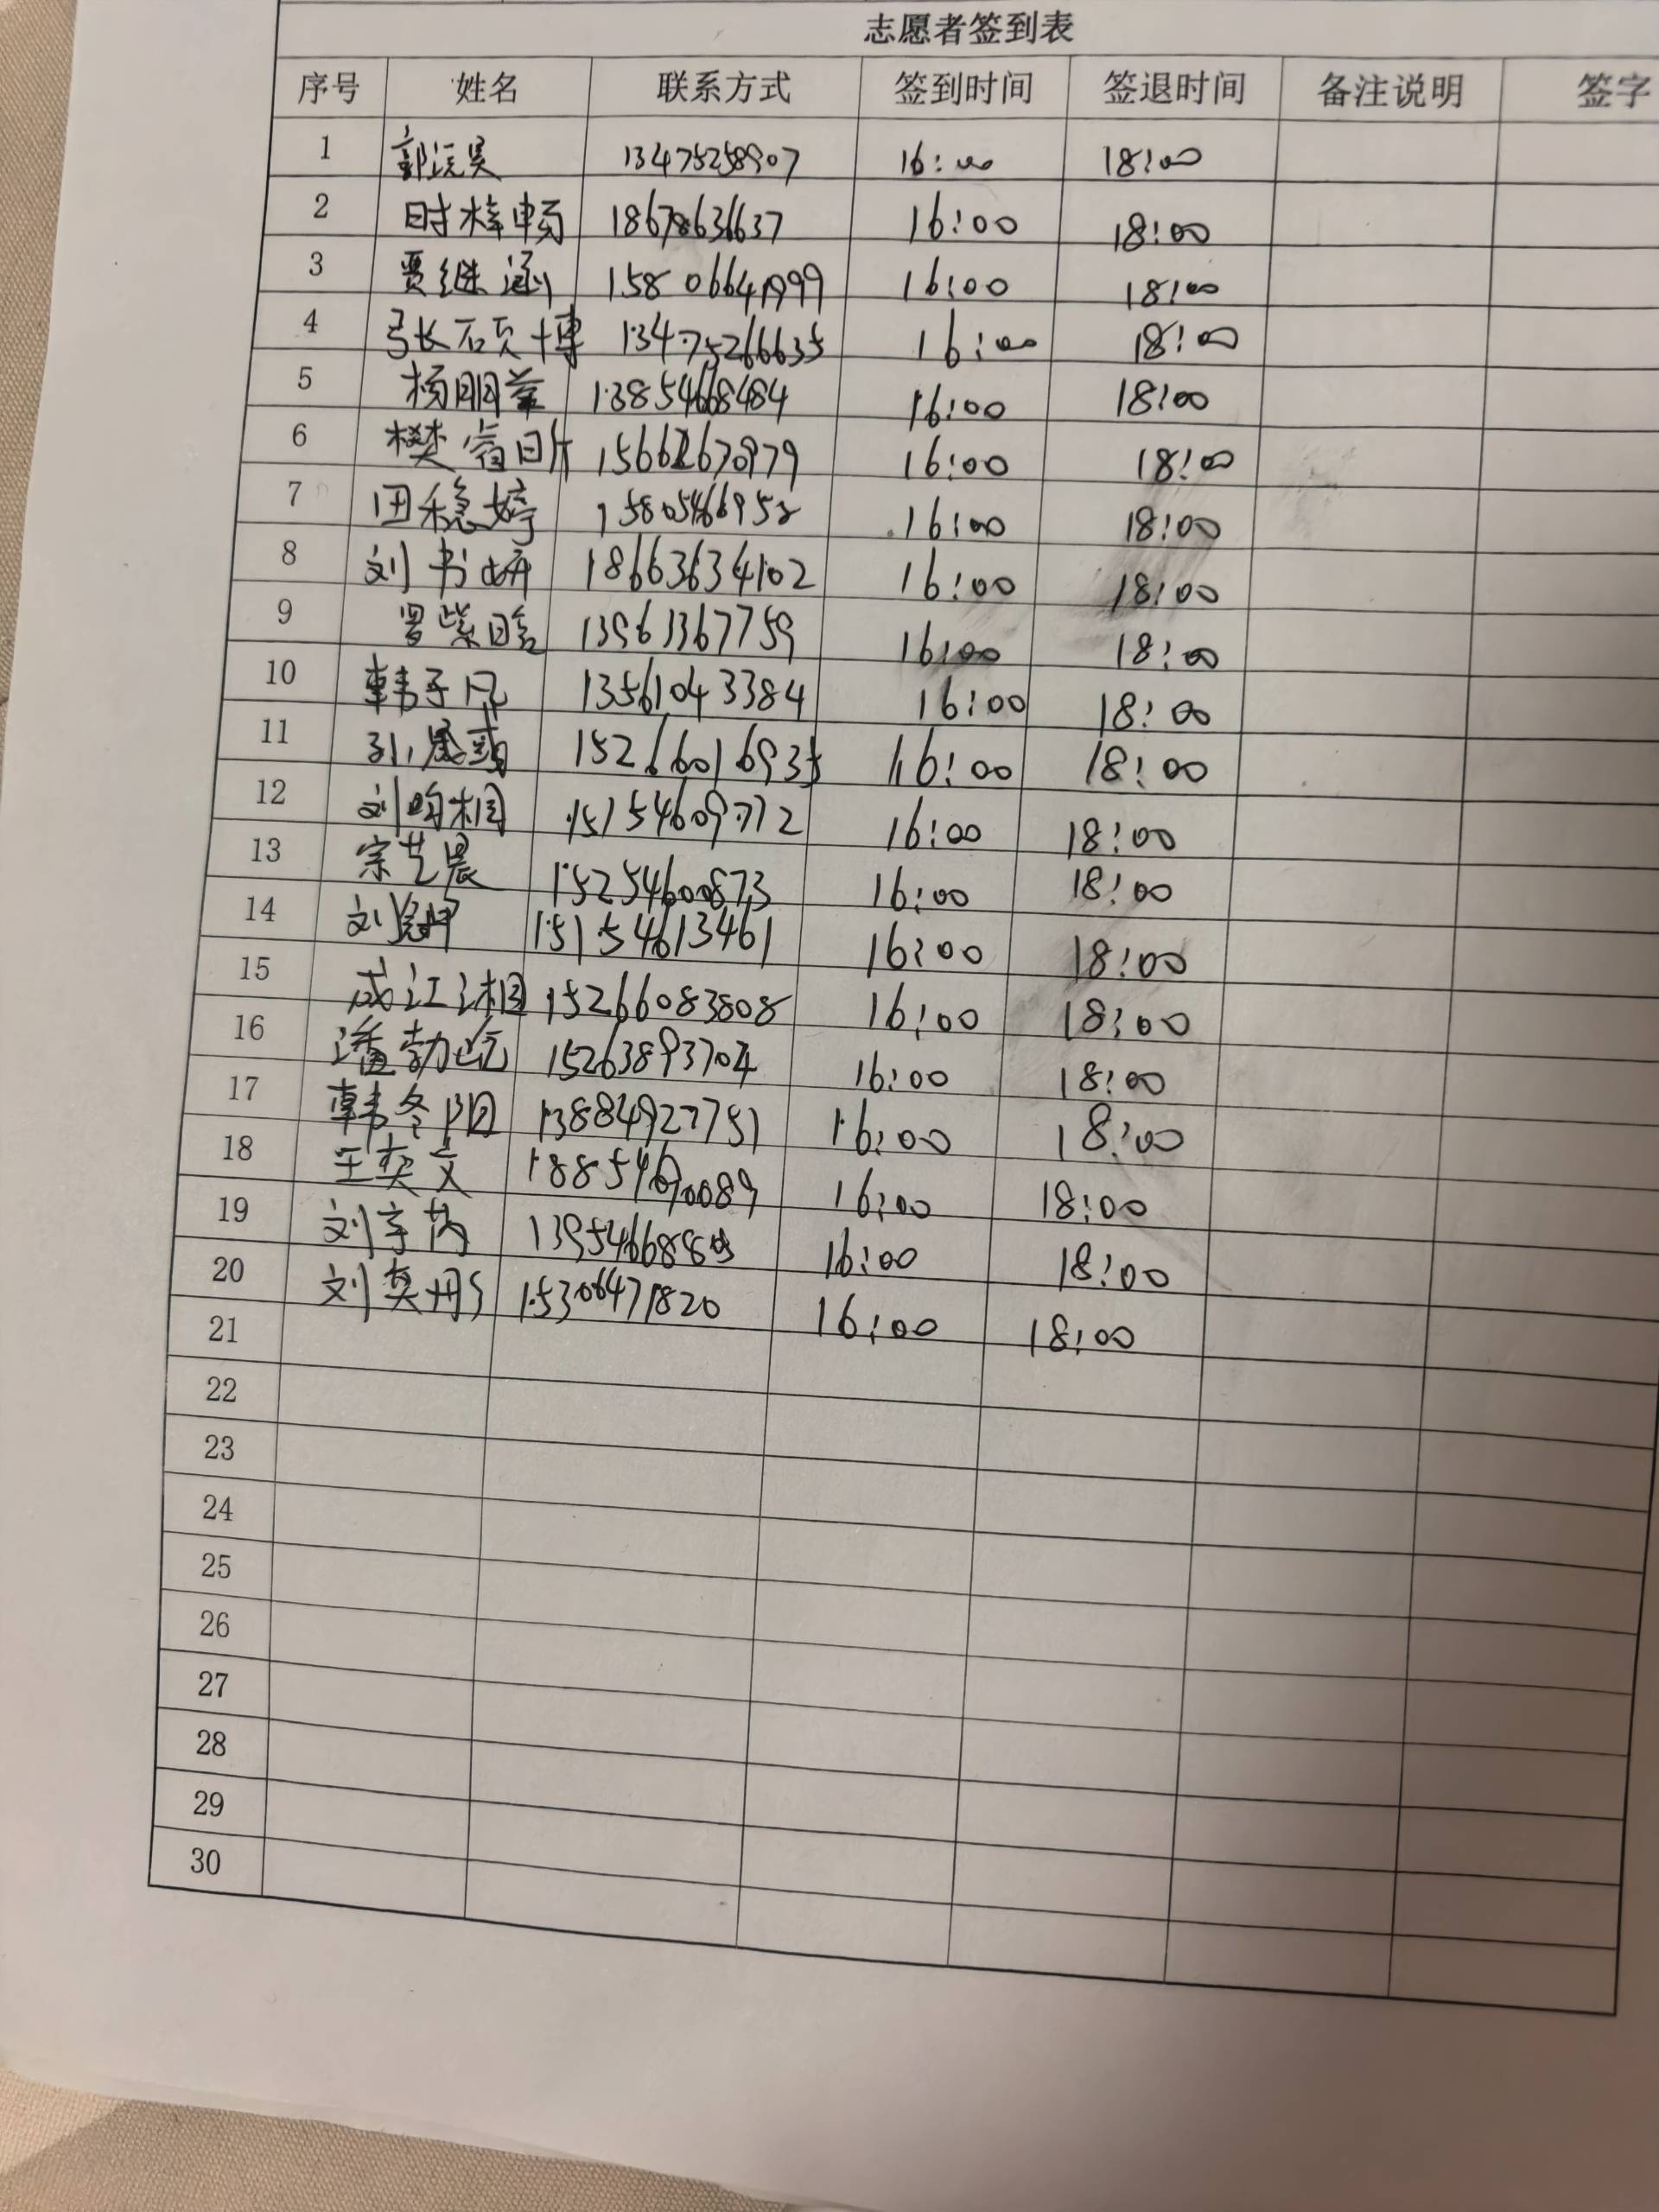 志愿者签到表
序号 姓名 联系方式 签到时间 签退时间 备注说明 签字
1 13475258907 16:00 18:00
2 时梓畅 18678636637 16:00 18:00
3 贾继涵 15806641999 16:00 18:00
4 张硕博 13475266635 16:00 18:00
5 杨朋 13854668484 16:00 18:00
6 樊 16:00 18:00
7 田稳婷 16:00 18:00
8 刘书妍 18663634102 16:00 18:00
9 罗紫晗 13961367759 16:00 18:00
10 韩子凡 13561043384 16:00 18:00
11 孙 15266016935 16:00 18:00
12 刘昀桐 15154609772 16:00 18:00
13 宗艺晨 15254600873 16:00 18:00
14 刘 15154613461 16:00 18:00
15 成江湘 15266083808 16:00 18:00
16 潘勃 15263893704 16:00 18:00
17 韩冬阳 13884927751 16:00 18:00
18 王奕文 16:00 18:00
19 刘宇芮 16:00 18:00
20 刘奕彤 15306471820 16:00 18:00
21
22
23
24
25
26
27
28
29
30